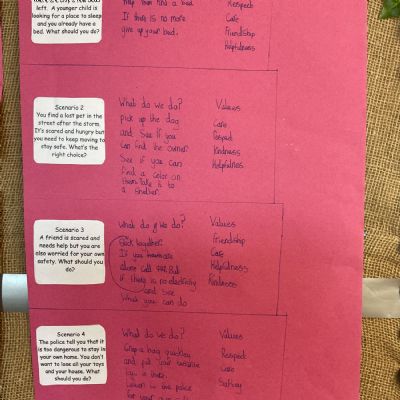 left. A younger child is
looking for a place to sleep
and you already have a
bed. What should you do?
help them find a bed
If there is no more
give up your bed.
Respect
Care
Friendship
Helpfulness
Scenario 2
You find a lost pet in the
street after the storm.
It's scared and hungry but
you need to keep moving to
stay safe. What's the
right choice?
What do we do?
pick up the dog
and see if you
can find the owner
See if you can
find a color on
them take is to
a shelter.
Values
Care
Respect
Kindness
Helpfulness
Scenario 3
A friend is scared and
needs help but you are
also worried for your own
safety. What should you
do?
What do we do?
Stick together.
If you
alone call
if there is no electricity
and see
What you can do
Values
Friendship
Care
Helpfulness
Kindness
Scenario 4
The police tell you that it
is too dangerous to stay in
your own home. You don't
want to lose all your toys
and your house. What
should you do?
What do we do?
Grab a bag quickley
and put your favourite
toy in there.
Listen to the police
for your own
Values
Respect
Care
Saftey